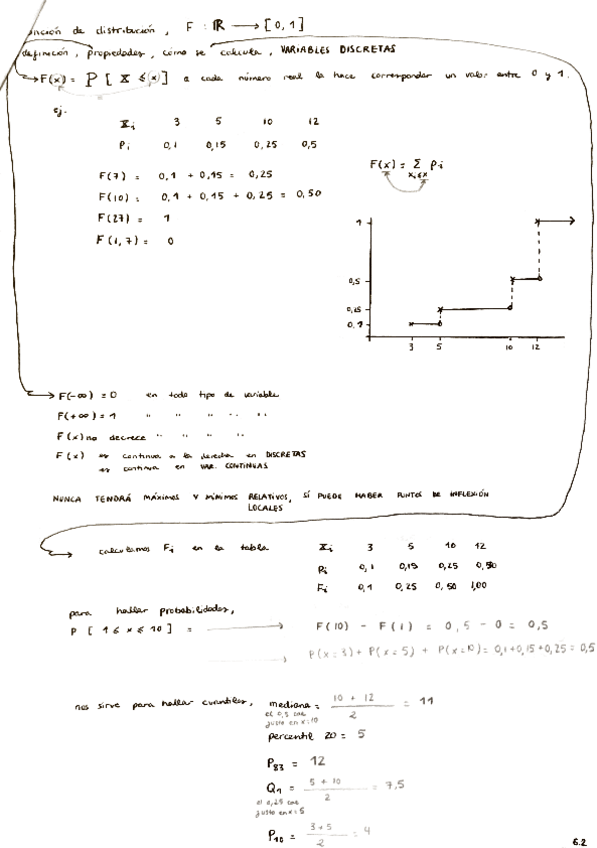 unción de distribución, F : ℝ ⟶ [0, 1]
definición, propiedades, cómo se calcula, VARIABLES DISCRETAS
F(x) = P [ X ≤ x ] a cada número real la hace corresponder un valor entre 0 y 1.
ej.
Xi 3 5 10 12
Pi 0,1 0,15 0,25 0,5
F(7) = 0,1 + 0,15 = 0,25
F(10) = 0,1 + 0,15 + 0,25 = 0,50
F(27) = 1
F(1,7) = 0
F(x) = Σ Pi
xi≤x
1
0,5
0,25
0,1
3 5 10 12
F(-∞) = 0 en todo tipo de variable
F(+∞) = 1 " " " " "
F(x) no decrece " " " "
F(x) es continua a la derecha en DISCRETAS
es continua en VAR. CONTINUAS
NUNCA TENDRÁ MÁXIMOS Y MÍNIMOS RELATIVOS, SÍ PUEDE HABER PUNTOS DE INFLEXIÓN
LOCALES
calculamos Fi en la tabla
Xi 3 5 10 12
Pi 0,1 0,15 0,25 0,50
Fi 0,1 0,25 0,50 1,00
para hallar probabilidades,
P [ 1 ≤ x ≤ 10 ] = ⟶ F(10) - F(1) = 0,5 - 0 = 0,5
⟶ P(x=3) + P(x=5) + P(x=10) = 0,1+0,15+0,25 = 0,5
nos sirve para hallar cuantiles, mediana = 10 + 12 / 2 = 11
el 0,5 cae
justo en x=10
percentil 20 = 5
P83 = 12
Q1 = 5 + 10 / 2 = 7,5
el 0,25 cae
justo en x=5
P10 = 3+5 / 2 = 4
6.2